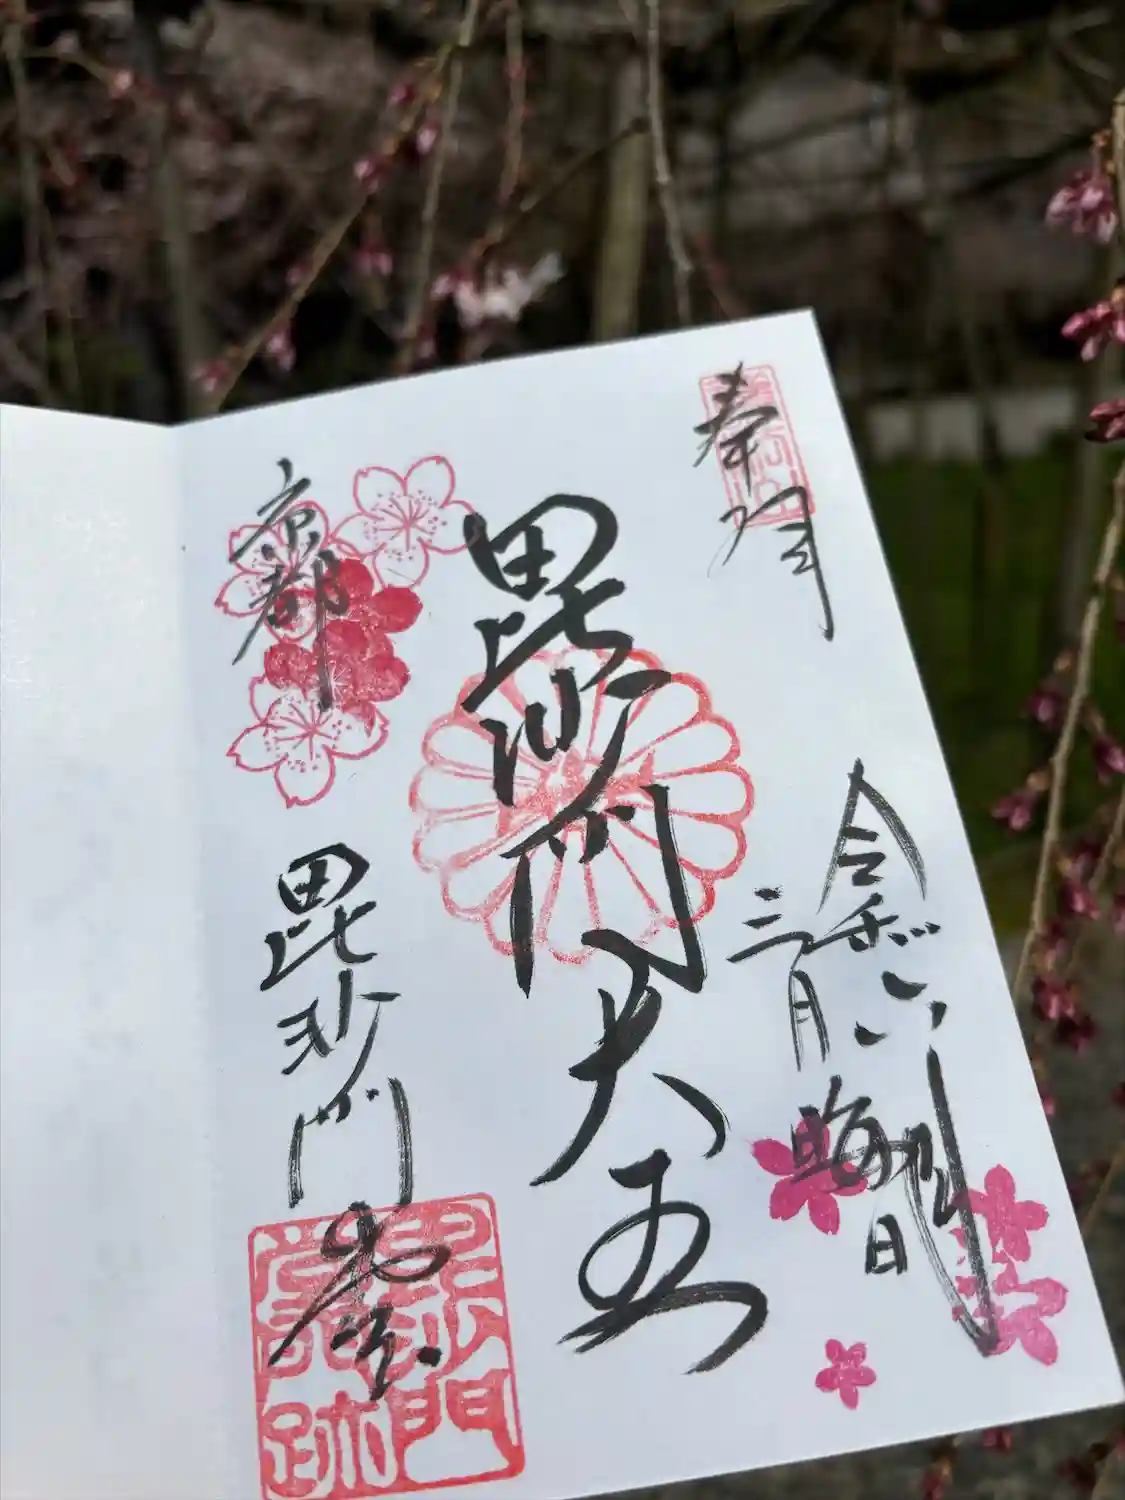 奉拝
令和六年
三月晦日
毘沙門天王
京都
毘沙門堂